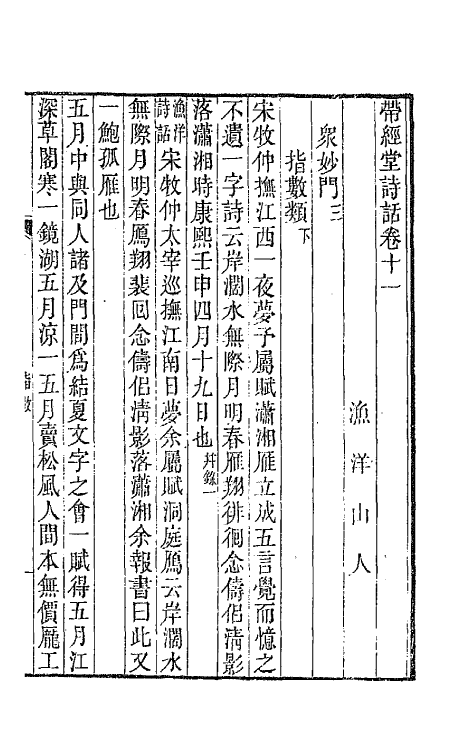 帶經堂詩話卷十一
漁洋山人
衆妙門三
指數類下
宋牧仲撫江西一夜夢予屬賦瀟湘雁立成五言覺而憶之
不遺一字詩云岸濶水無際月明春雁翔徘徊念儔侶淸影
落瀟湘時康熙壬申四月十九日也幷錄一
漁洋詩話宋牧仲太宰巡撫江南日夢余屬賦洞庭鴈云岸濶水
無際月明春鴈翔裴回念儔侶淸影落瀟湘余報書曰此又
一鮑孤雁也
五月中與同人諸及門閒爲結夏文字之會一賦得五月江
深草閣寒一鏡湖五月涼一五月賣松風人間本無價龐工